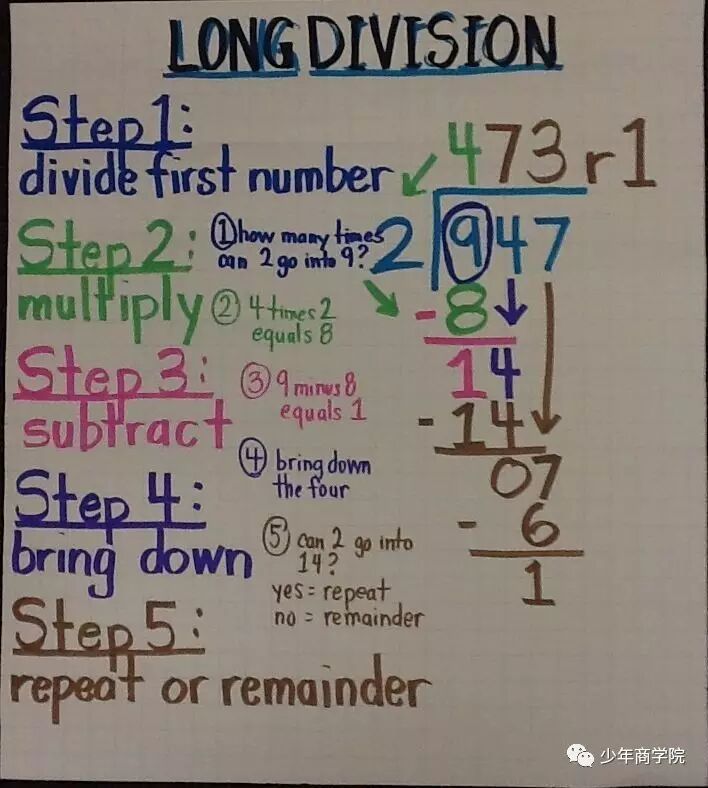 LONG DIVISION
Step 1:
divide first number
Step 2:
multiply
Step 3:
subtract
Step 4:
bring down
Step 5:
repeat or remainder
① how many times
can 2 go into 9?
② 4 times 2
equals 8
③ 9 minus 8
equals 1
④ bring down
the four
⑤ can 2 go into
14?
yes = repeat
no = remainder
473 r 1
2 947
- 8
14
- 14
07
- 6
1
少年商学院